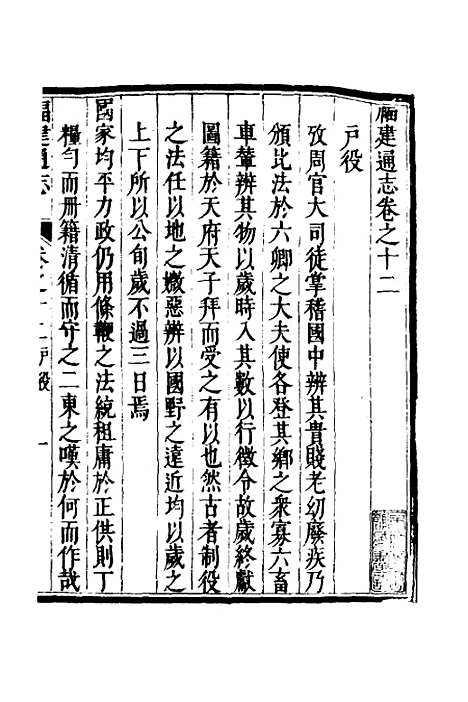 福建通志卷之十二
戸役
攷周官大司徒掌稽國中辨其貴賤老幼廢疾乃
頒比法於六卿之大夫使各登其鄉之衆寡六畜
車輦辨其物以歲時入其數以行徵令故歲終獻
圖籍於天府天子拜而受之有以也然古者制役
之法任以地之媺惡辨以國野之遠近均以歲之
上下所以公旬歲不過三日焉
國家均平力政仍用條鞭之法統租庸於正供則丁
糧勻而册籍清循而守之二東之嘆於何而作哉
福建通志
卷之十二戸役
一